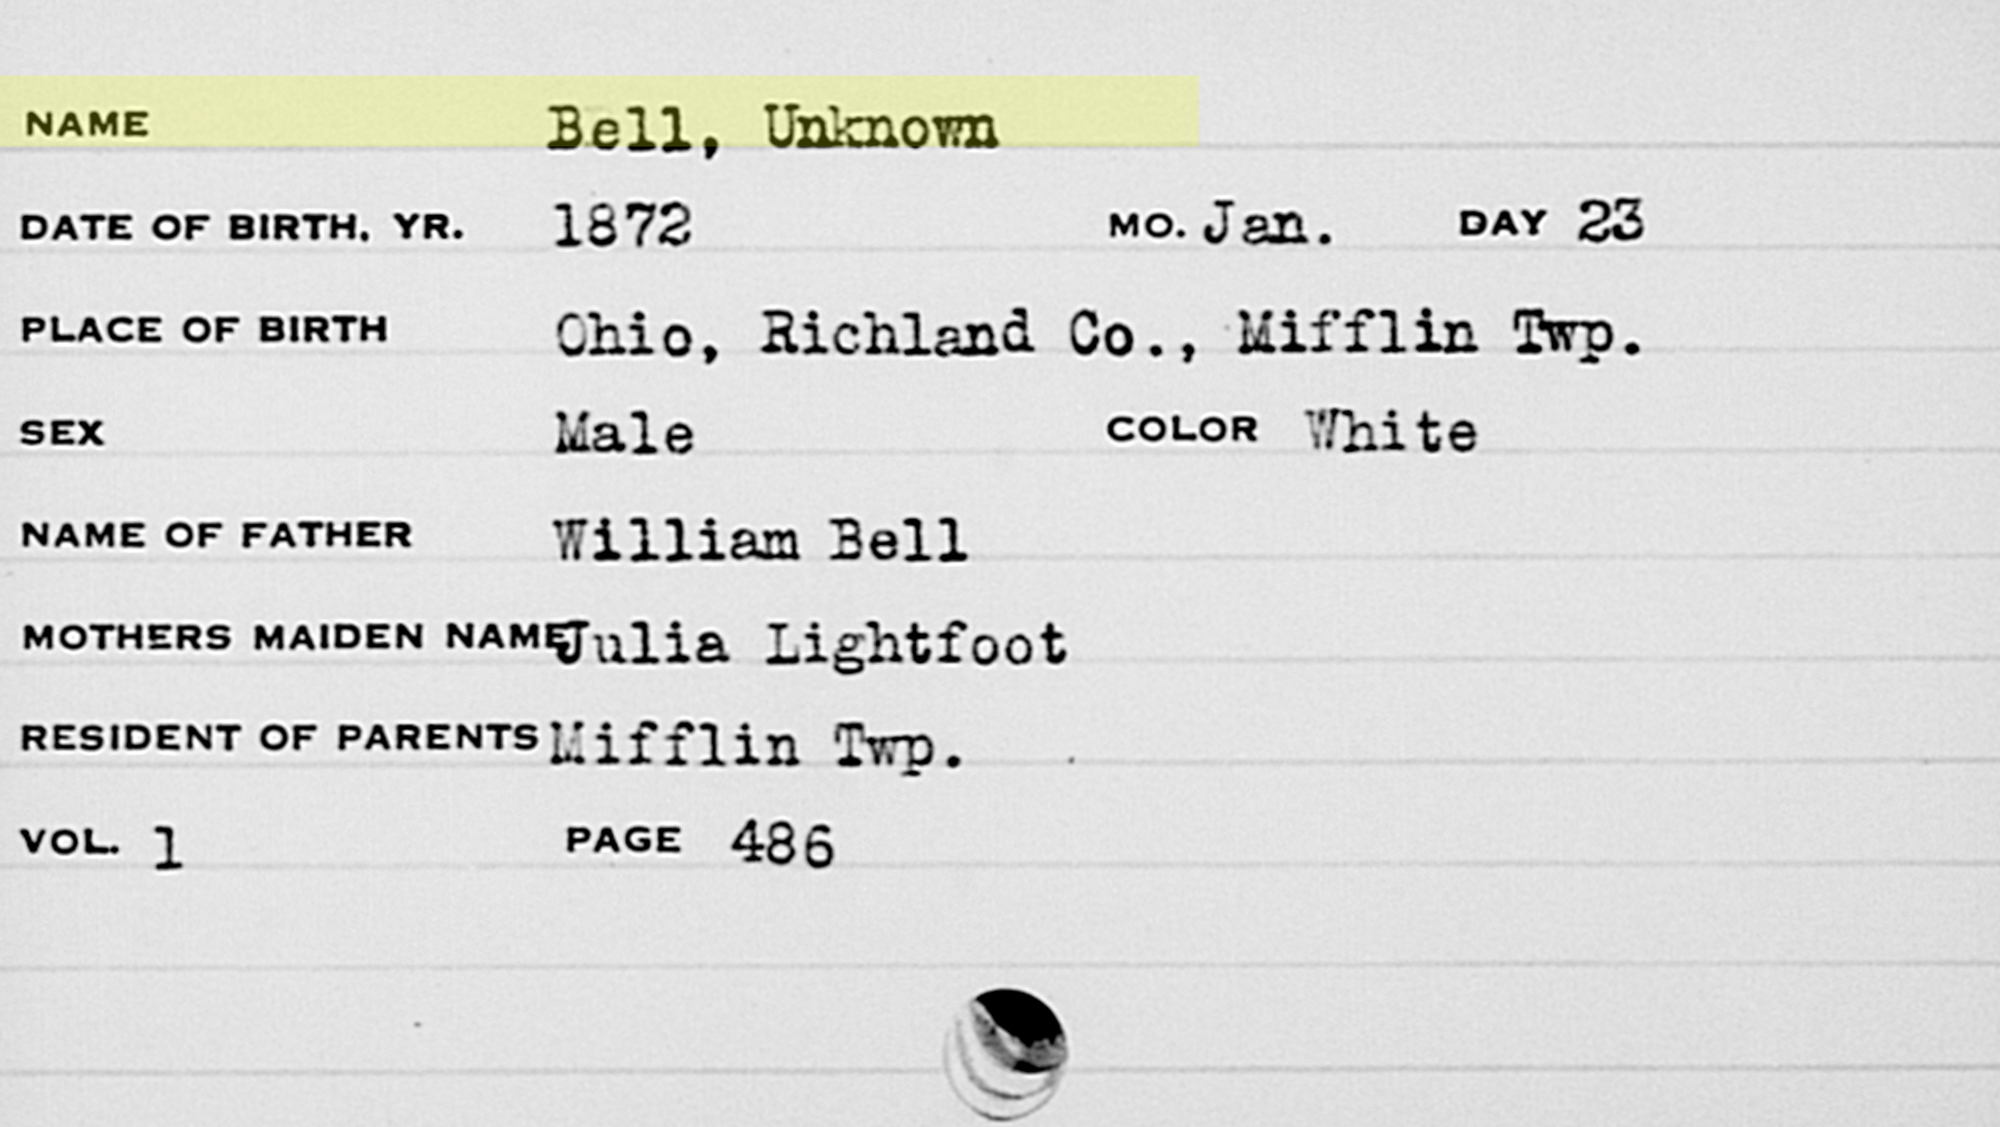 NAME Bell, Unknown
DATE OF BIRTH. YR. 1872 MO. Jan. DAY 23
PLACE OF BIRTH Ohio, Richland Co., Mifflin Twp.
SEX Male COLOR White
NAME OF FATHER William Bell
MOTHERS MAIDEN NAME Julia Lightfoot
RESIDENT OF PARENTS Mifflin Twp.
VOL. 1 PAGE 486